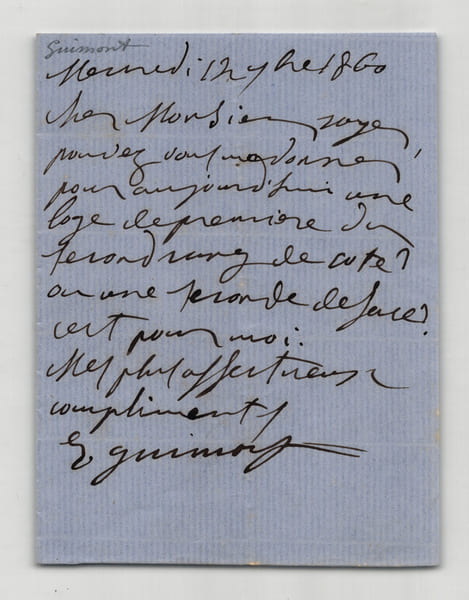 Guimont
Mercredi 12 7bre 1860
Cher Monsieur Royer,
pouvez vous me donner,
pour aujourd'hui une
loge de premiere du
second rang de coté?
ou une seconde de face?
c'est pour moi.
Mes plus affectueux
compliments
E Guimont